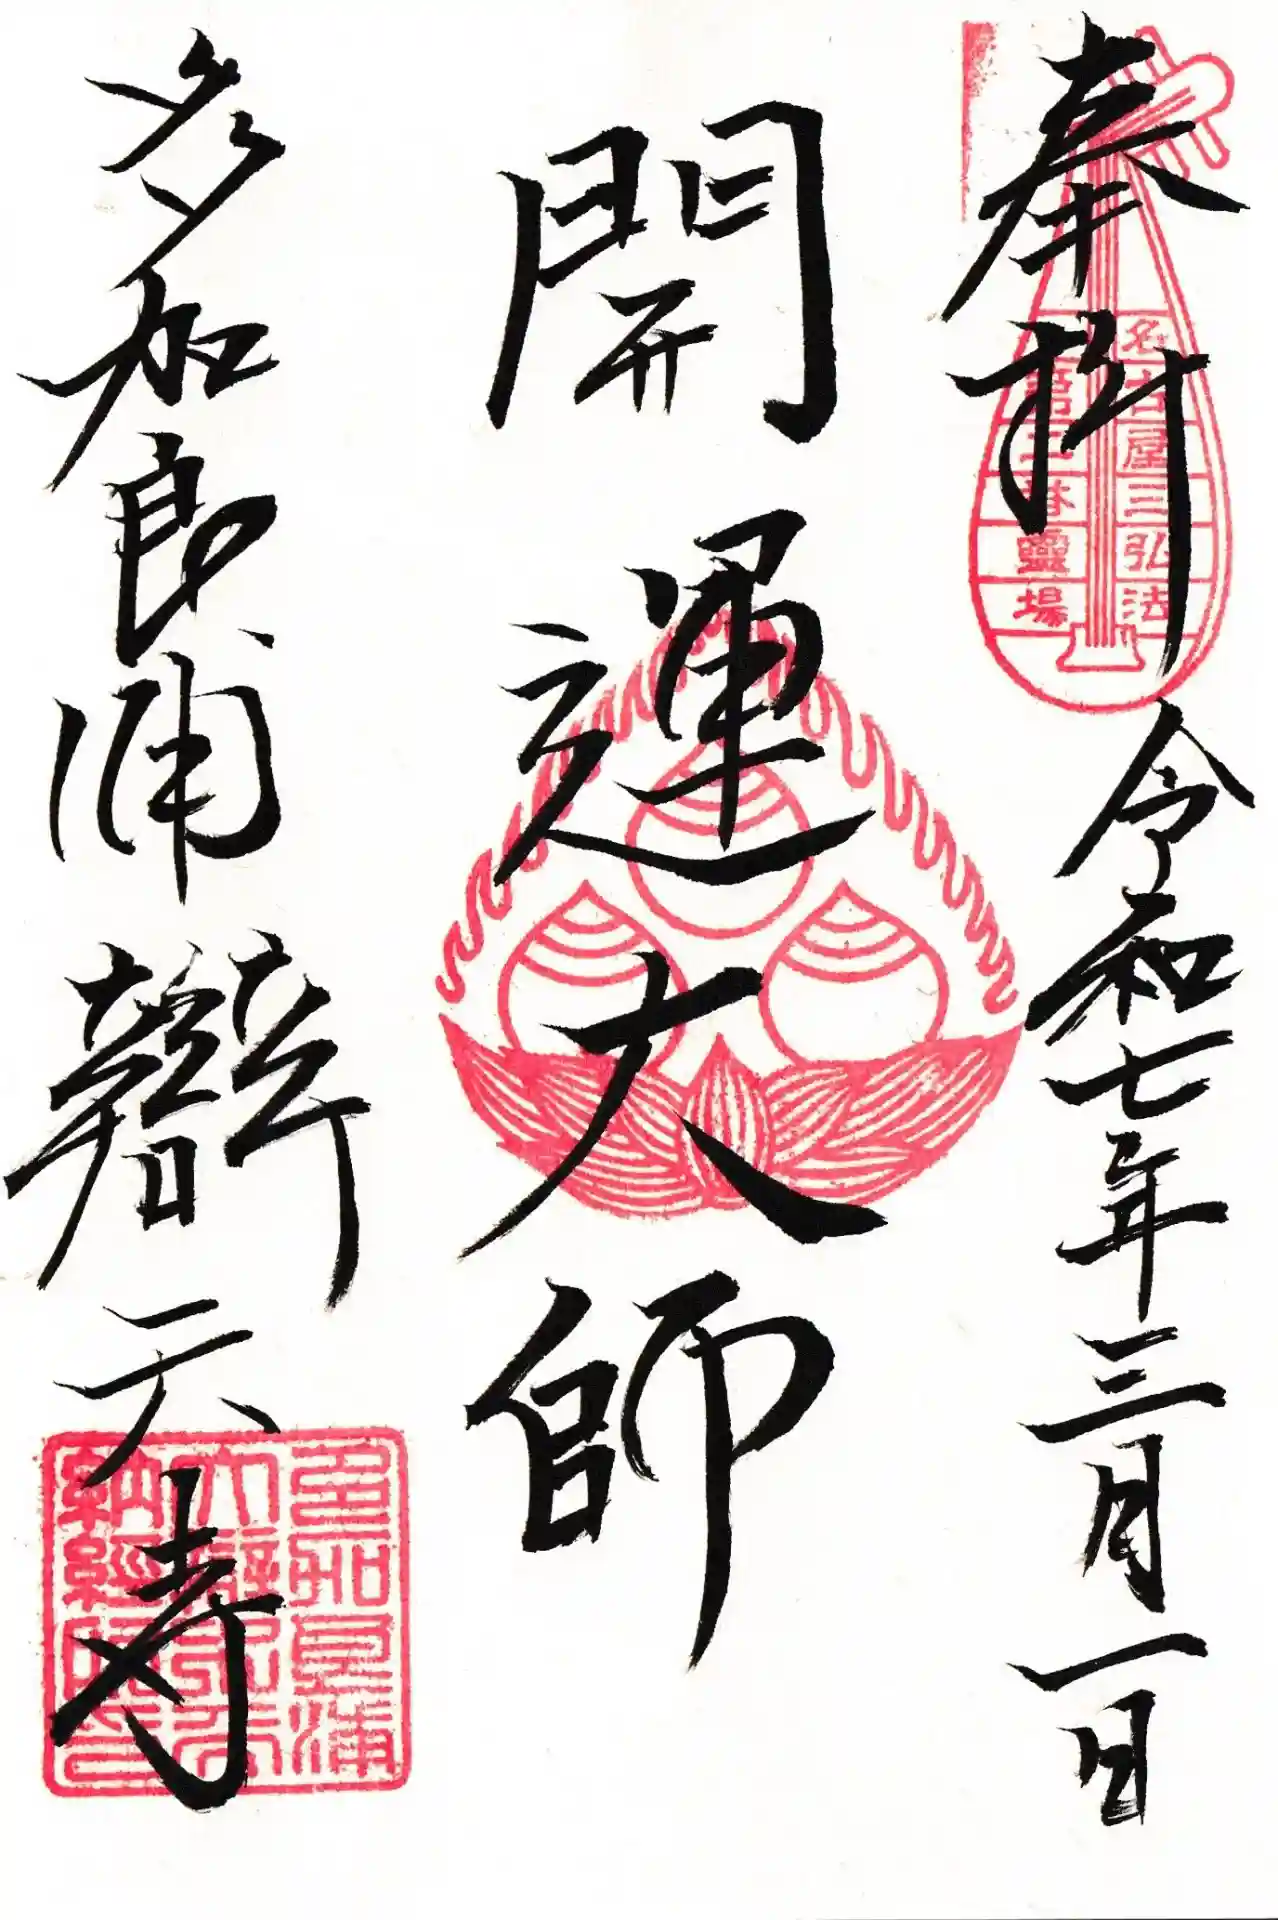 奉拝 令和七年三月一日
名古屋三弘法
第二番靈場
開運大師
多加良浦 辯天寺
多加良浦